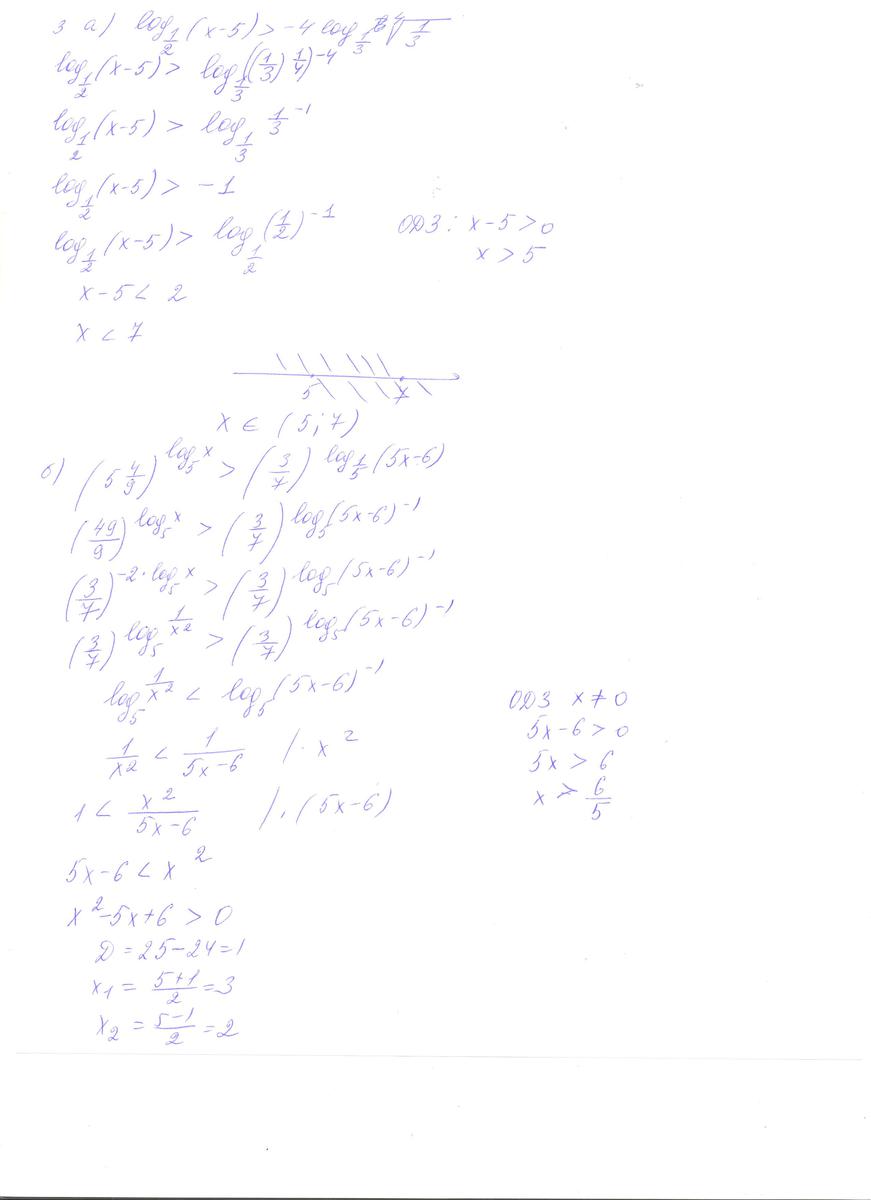 3 а) log_{1/2}(x-5) > -4 log_{1/3} ⁴√(1/3)
log_{1/2}(x-5) > log_{1/3}((1/3)^{1/4})^{-4}
log_{1/2}(x-5) > log_{1/3} 1/3^{-1}
log_{1/2}(x-5) > -1
log_{1/2}(x-5) > log_{1/2}(1/2)^{-1}
ОДЗ: x-5 > 0
x > 5
x-5 < 2
x < 7
5 7
x ∈ (5; 7)
б) (5 4/9)^{log_5 x} > (3/7)^{log_{1/5}(5x-6)}
(49/9)^{log_5 x} > (3/7)^{log_5(5x-6)^{-1}}
(3/7)^{-2·log_5 x} > (3/7)^{log_5(5x-6)^{-1}}
(3/7)^{log_5 1/x²} > (3/7)^{log_5(5x-6)^{-1}}
log_5 1/x² < log_5(5x-6)^{-1}
1/x² < 1/(5x-6) /· x²
1 < x²/(5x-6) /· (5x-6)
ОДЗ x ≠ 0
5x-6 > 0
5x > 6
x > 6/5
5x-6 < x²
x²-5x+6 > 0
D = 25-24 = 1
x₁ = (5+1)/2 = 3
x₂ = (5-1)/2 = 2